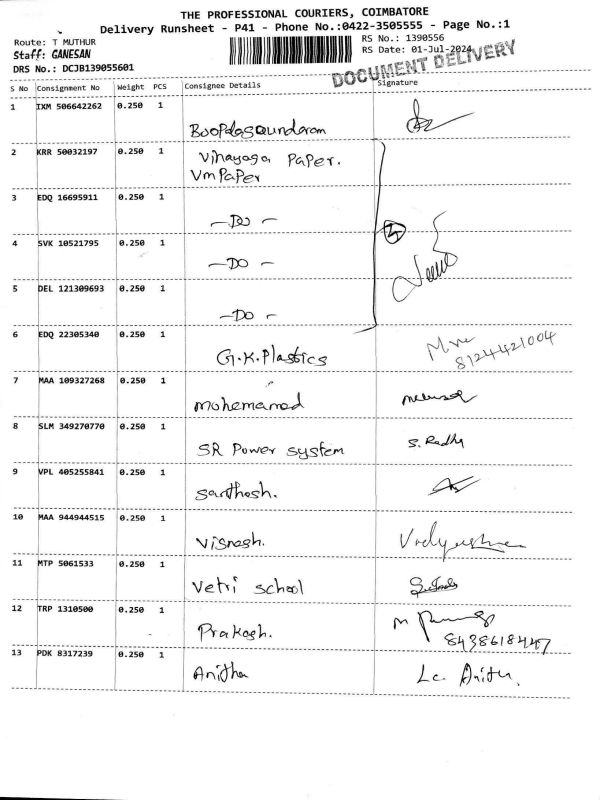 THE PROFESSIONAL COURIERS, COIMBATORE
Delivery Runsheet - P41 - Phone No.:0422-3505555 - Page No.:1
Route: T MUTHUR
RS No.: 1390556
Staff: GANESAN
RS Date: 01-Jul-2024
DRS No.: DCJB139055601
DOCUMENT DELIVERY
S No Consignment No Weight PCS Consignee Details Signature
1 IXM 506642262 0.250 1
2 KRR 50032197 0.250 1 Vinayaga Paper.
Vm Paper
3 EDQ 16695911 0.250 1
-DO-
4 SVK 10521795 0.250 1
-DO-
5 DEL 121309693 0.250 1
-DO-
6 EDQ 22305340 0.250 1
G.K.Plastics 8124421004
7 MAA 109327268 0.250 1
mohemamad
8 SLM 349270770 0.250 1
SR Power system S. Radha
9 VPL 405255841 0.250 1
Santhosh.
10 MAA 944944515 0.250 1
Visnesh.
11 MTP 5061533 0.250 1
Vetri school
12 TRP 1310500 0.250 1
Prakash. 8438618447
13 PDK 8317239 0.250 1
Anitha